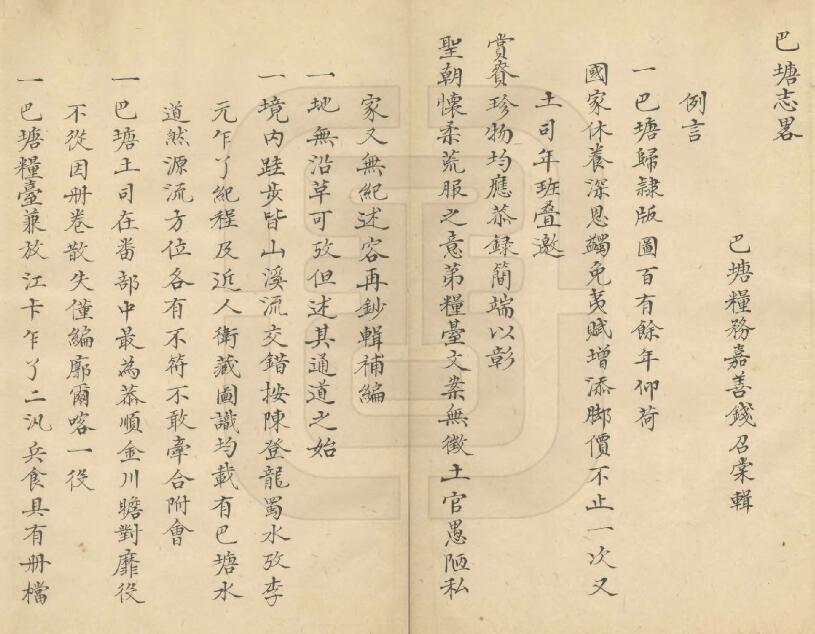 巴塘志畧
巴塘糧務嘉善錢召棠輯
例言
一巴塘歸隷版圖百有餘年仰荷
國家休養深恩蠲免夷賦增添脚價不止一次又
土司年班叠邀
賞賚珍物均應恭録簡端以彰
聖朝懷柔荒服之意第糧臺文案無徵土官愚陋私
家又無紀述容再鈔輯補編
一地無沿革可攷但述其通道之始
一境內跬步皆山溪流交錯按陳登龍蜀水攷李
元乍丫紀程及近人衛藏圖識均載有巴塘水
道然源流方位各有不符不敢牽合附會
一巴塘土司在畨部中最為恭順金川瞻對靡役
不從因册卷散失僅編廓爾喀一役
一巴塘糧臺兼放江卡乍丫二汛兵食具有册檔